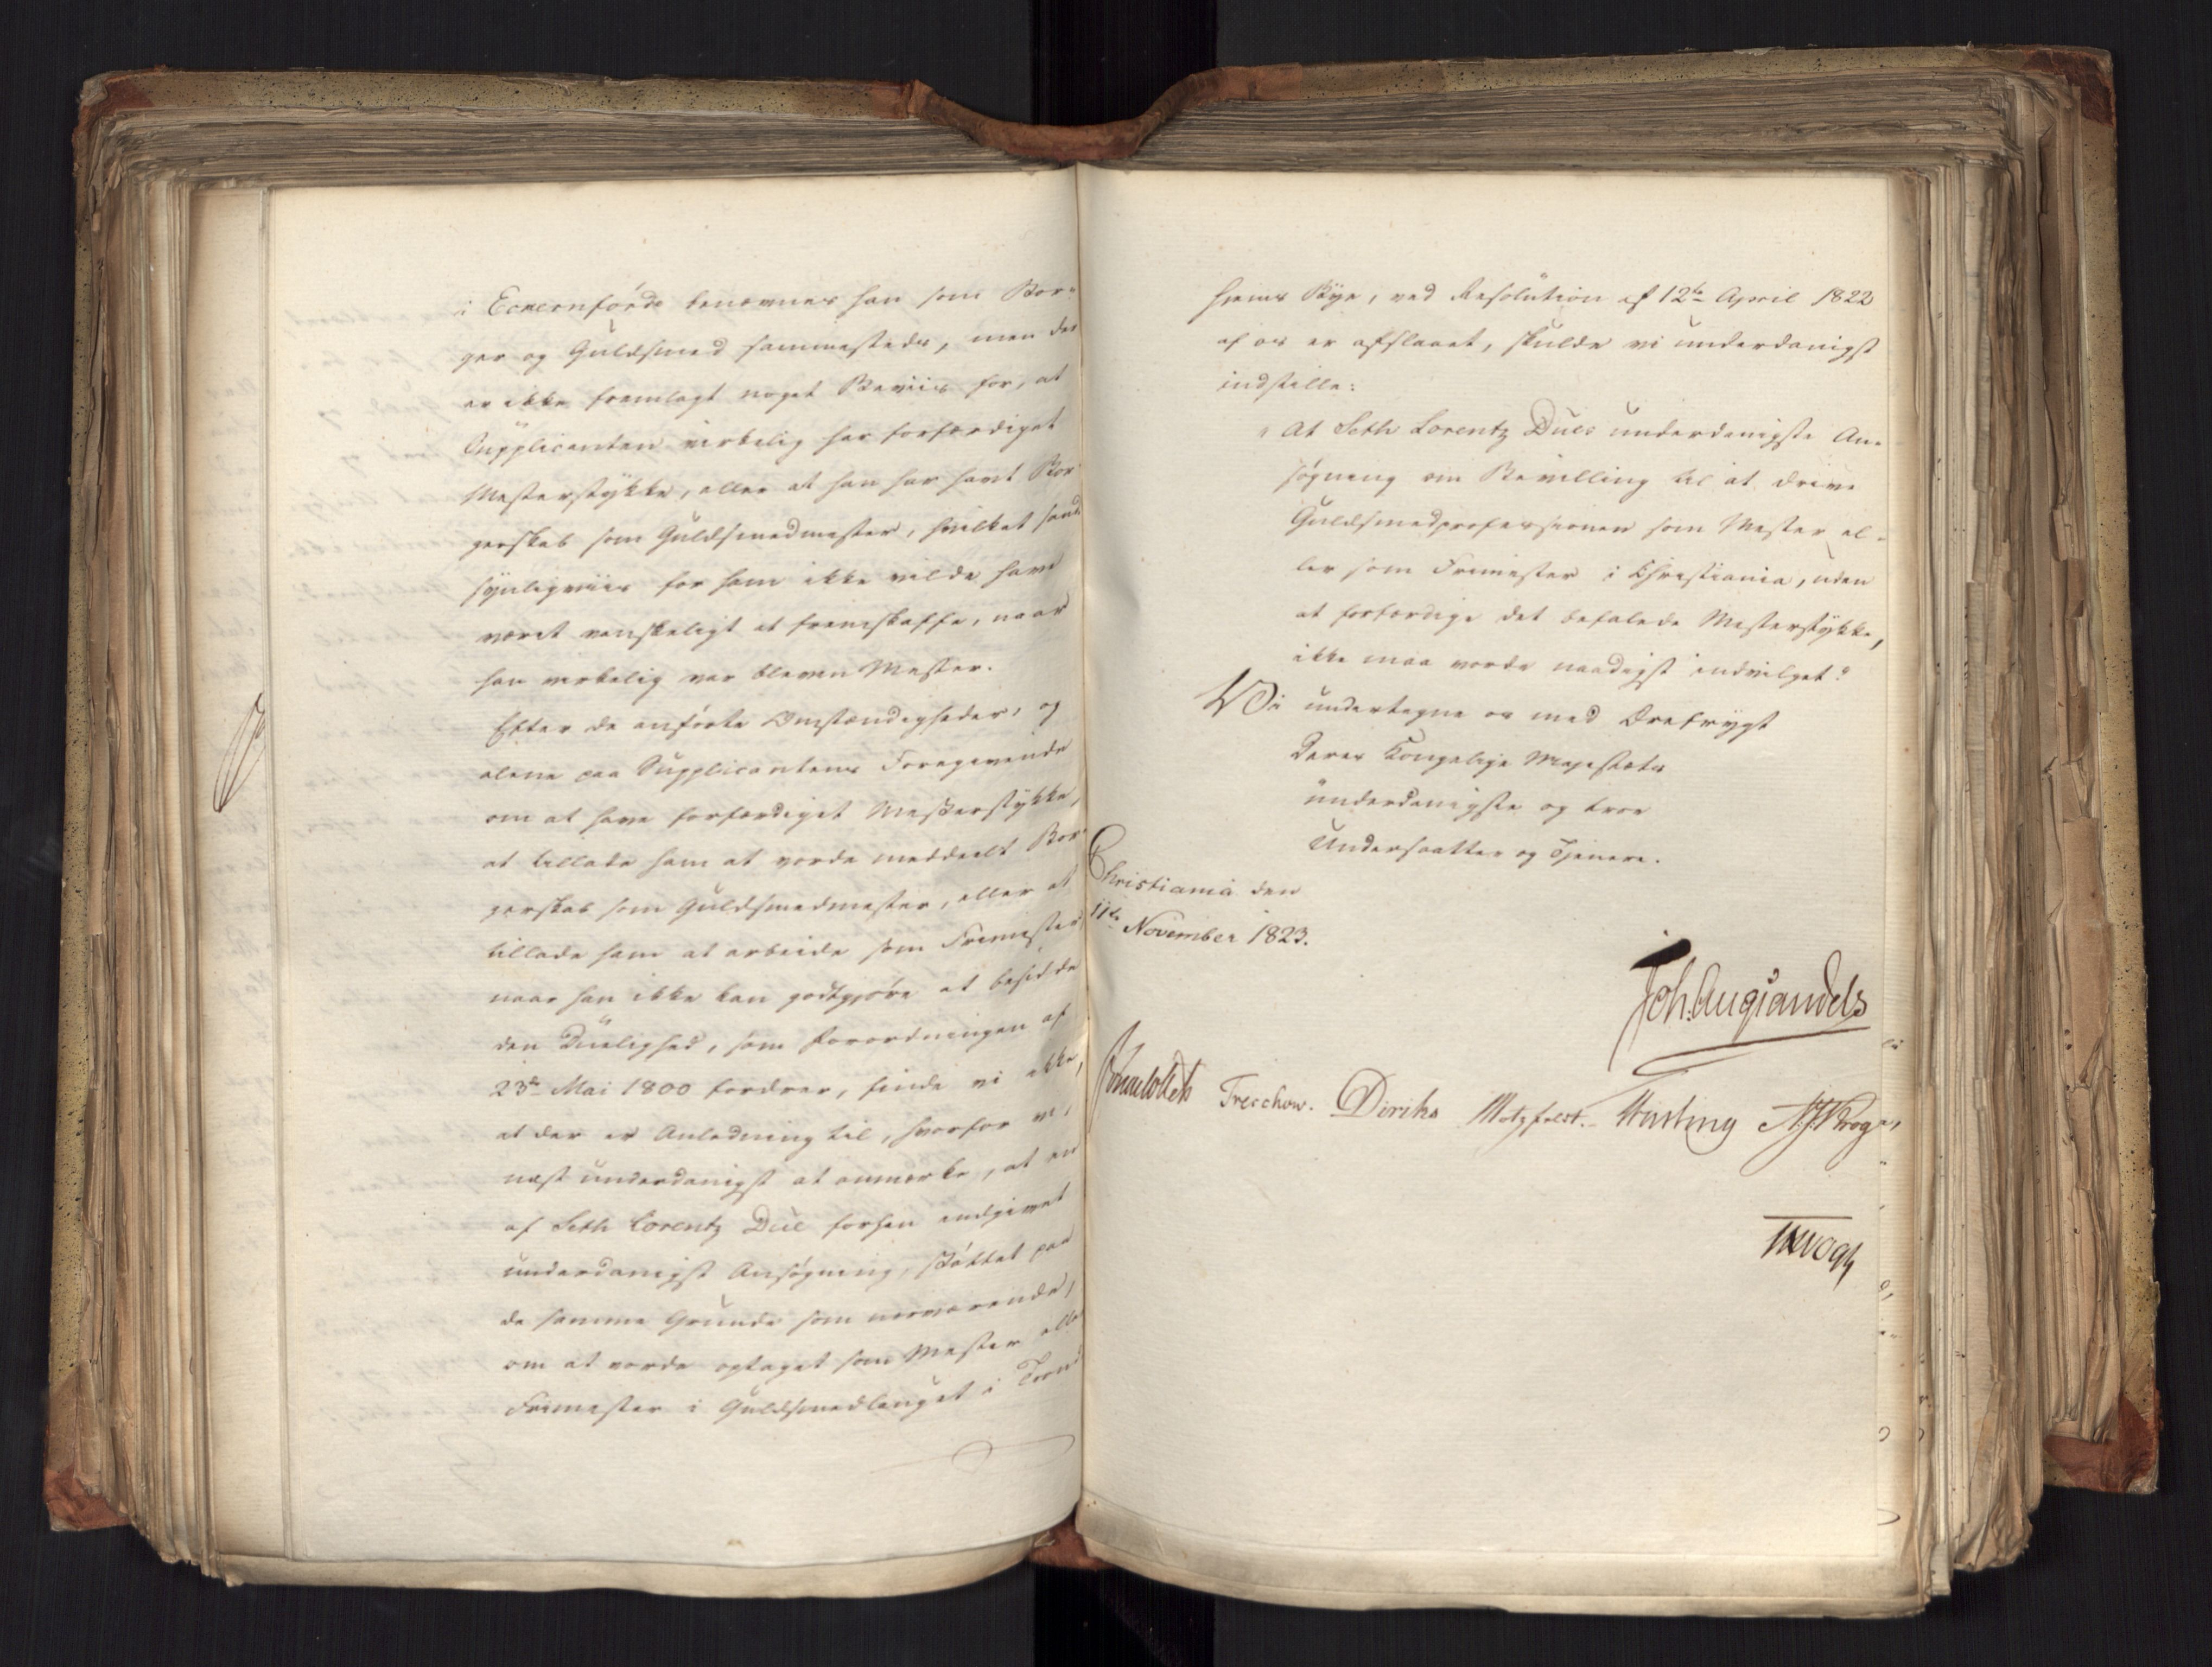 i Eckernförde benævnes han som Bor-
ger og Guldsmed sammesteds, men der
er ikke fremlagt noget Beviis for, at
Supplicanten virkelig har forfærdiget
Mesterstykke, eller at han har havt Bor-
gerskab som Guldsmedmester, hvilket sand-
synligviis for ham ikke vilde have
været vanskeligt at fremskaffe, naar
han virkelig var bleven Mester.
Efter de anførte Omstændigheder, og
alene paa Supplicantens Foregivende
om at have forfærdiget Mesterstykke,
at tillade ham at vorde meddeelt Bor-
gerskab som Guldsmedmester, eller at
tillade ham at arbeide som Frimester,
naar han ikke kan godtgjøre at besidde
den Duelighed, som Forordningen af
23de Mai 1800 fordrer, finde vi ikke,
at der er Anledning til, hvorfor vi,
næst underdanigst at anmærke, at en
af Seth Lorentz Due forhen indgivet
underdanigst Ansøgning, støttet paa
de samme Grunde som nærværende,
om at vorde optaget som Mester eller
Frimester i Guldsmedlauget i Trond-
hjems Bye, ved Resolution af 12te April 1822
af os er afslaaet, skulde vi underdanigst
indstille:
"At Seth Lorentz Dues underdanigste An-
søgning om Bevilling til at drive
Guldsmedprofessionen som Mester el-
ler som Frimester i Christiania, uden
at forfærdige det befalede Mesterstykke,
ikke maa vorde naadigst indvilget."
Vi undertegne os med Ærefrygt
Deres Kongelige Majestæts
underdanigste og troe
Undersaatter og Tjenere.
Christiania den
11te November 1823.
Joh. Aug. Sandels
Sommerhielm Treschow. Diriks Motzfeldt. Fasting N. J. Krog